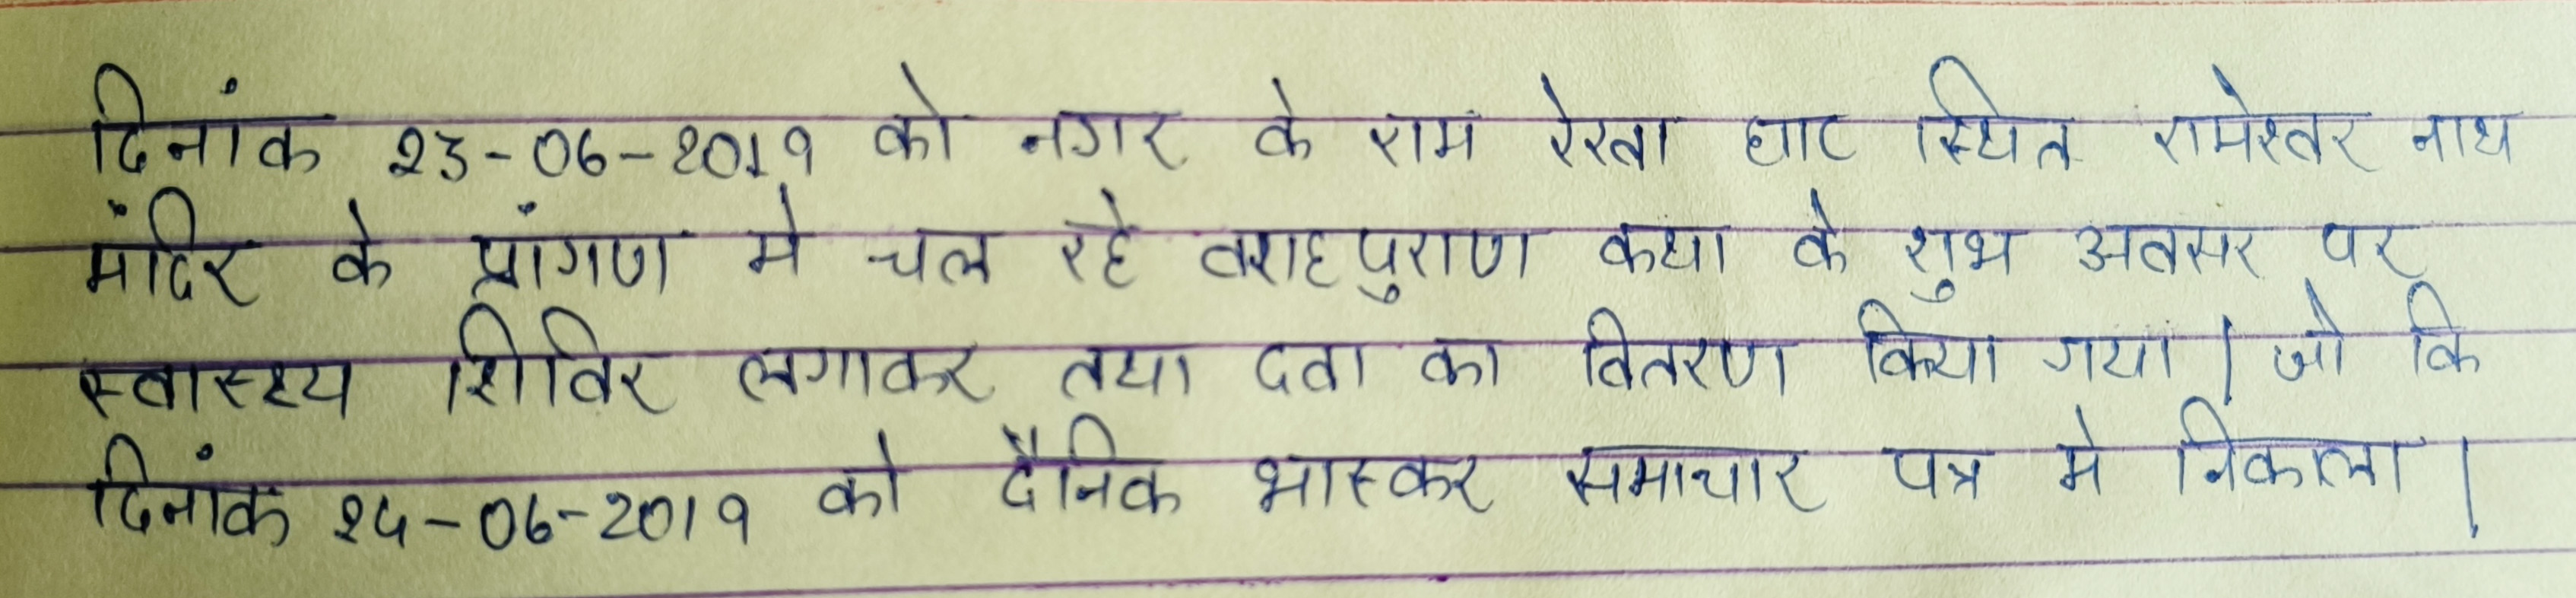 दिनांक 23-06-2019 को नगर के राम रेखा घाट स्थित रामेश्वर नाथ
मंदिर के प्रांगण मे चल रहे वराहपुराण कथा के शुभ अवसर पर
स्वास्थ्य शिविर लगाकर तथा दवा का वितरण किया गया। जो कि
दिनांक 24-06-2019 को दैनिक भास्कर समाचार पत्र मे निकाला।